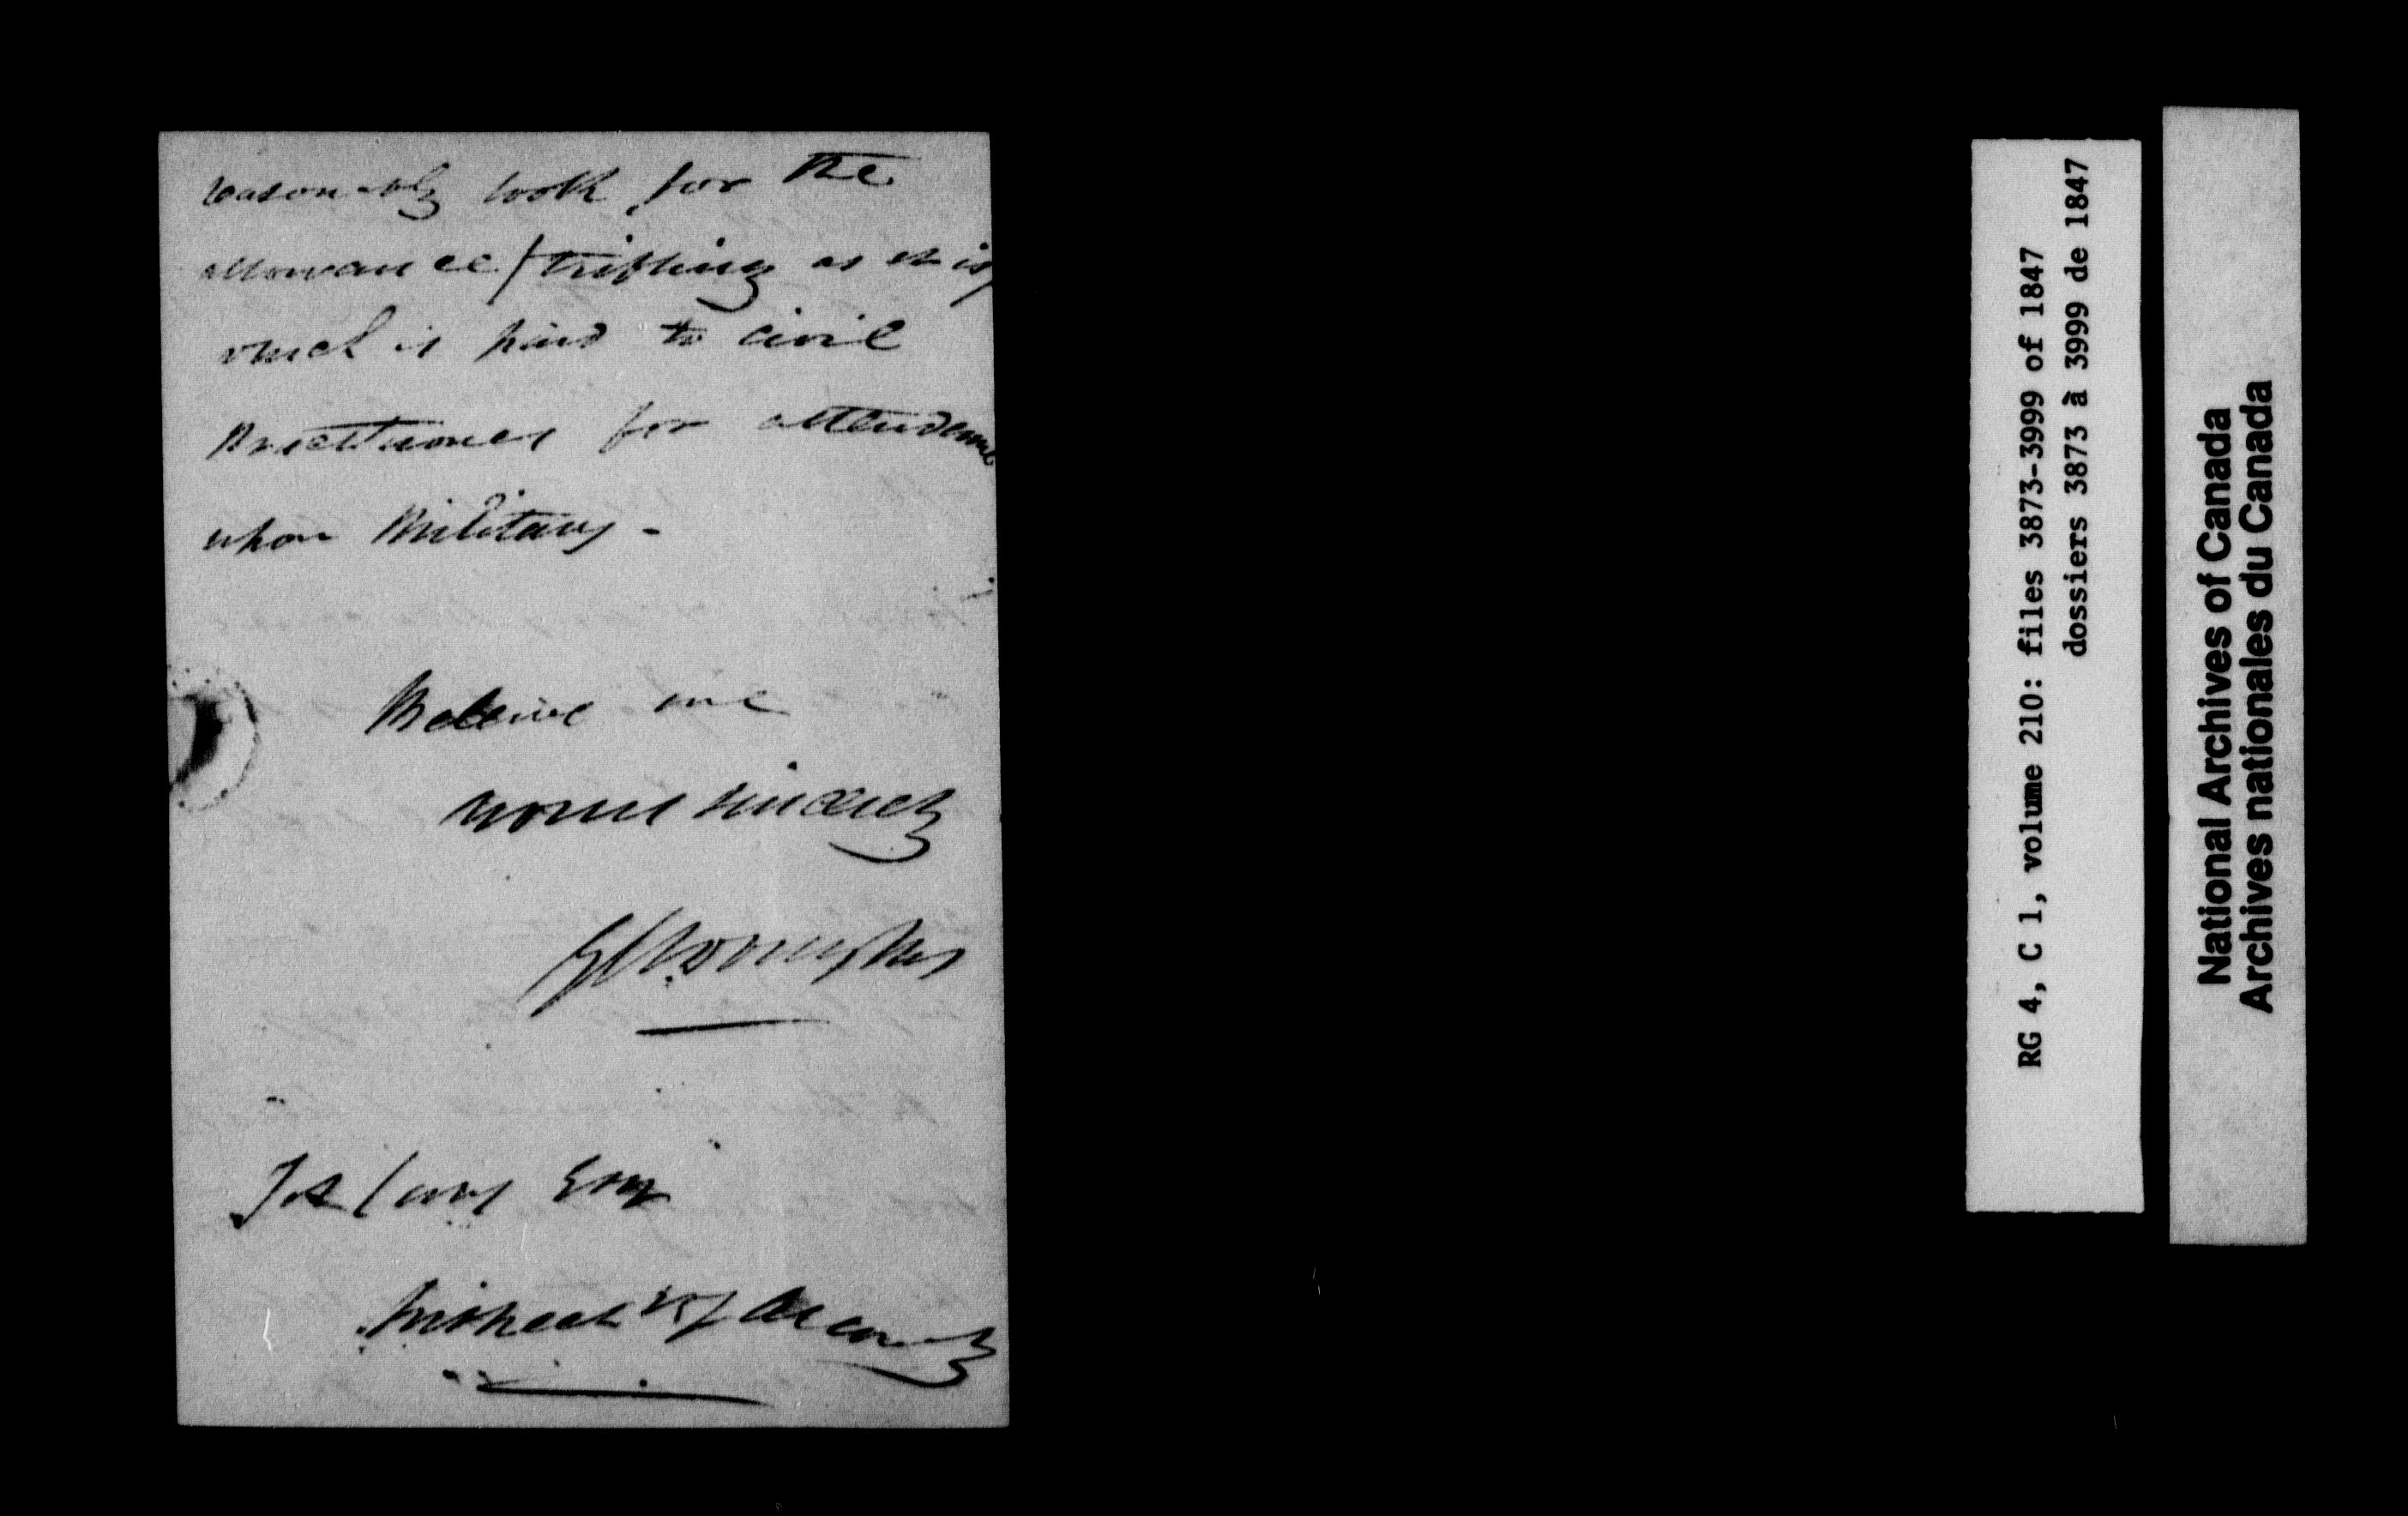 reasonably look for the
allowance (trifling as it is)
which is paid to civil
Practitioners for attendance
upon Military -
Believe me
yours sincerely
Jos Cary Esq
Inspectr of Accounts
RG 4, C 1, volume 210: files 3873-3999 of 1847
dossiers 3873 à 3999 de 1847
National Archives of Canada
Archives nationales du Canada